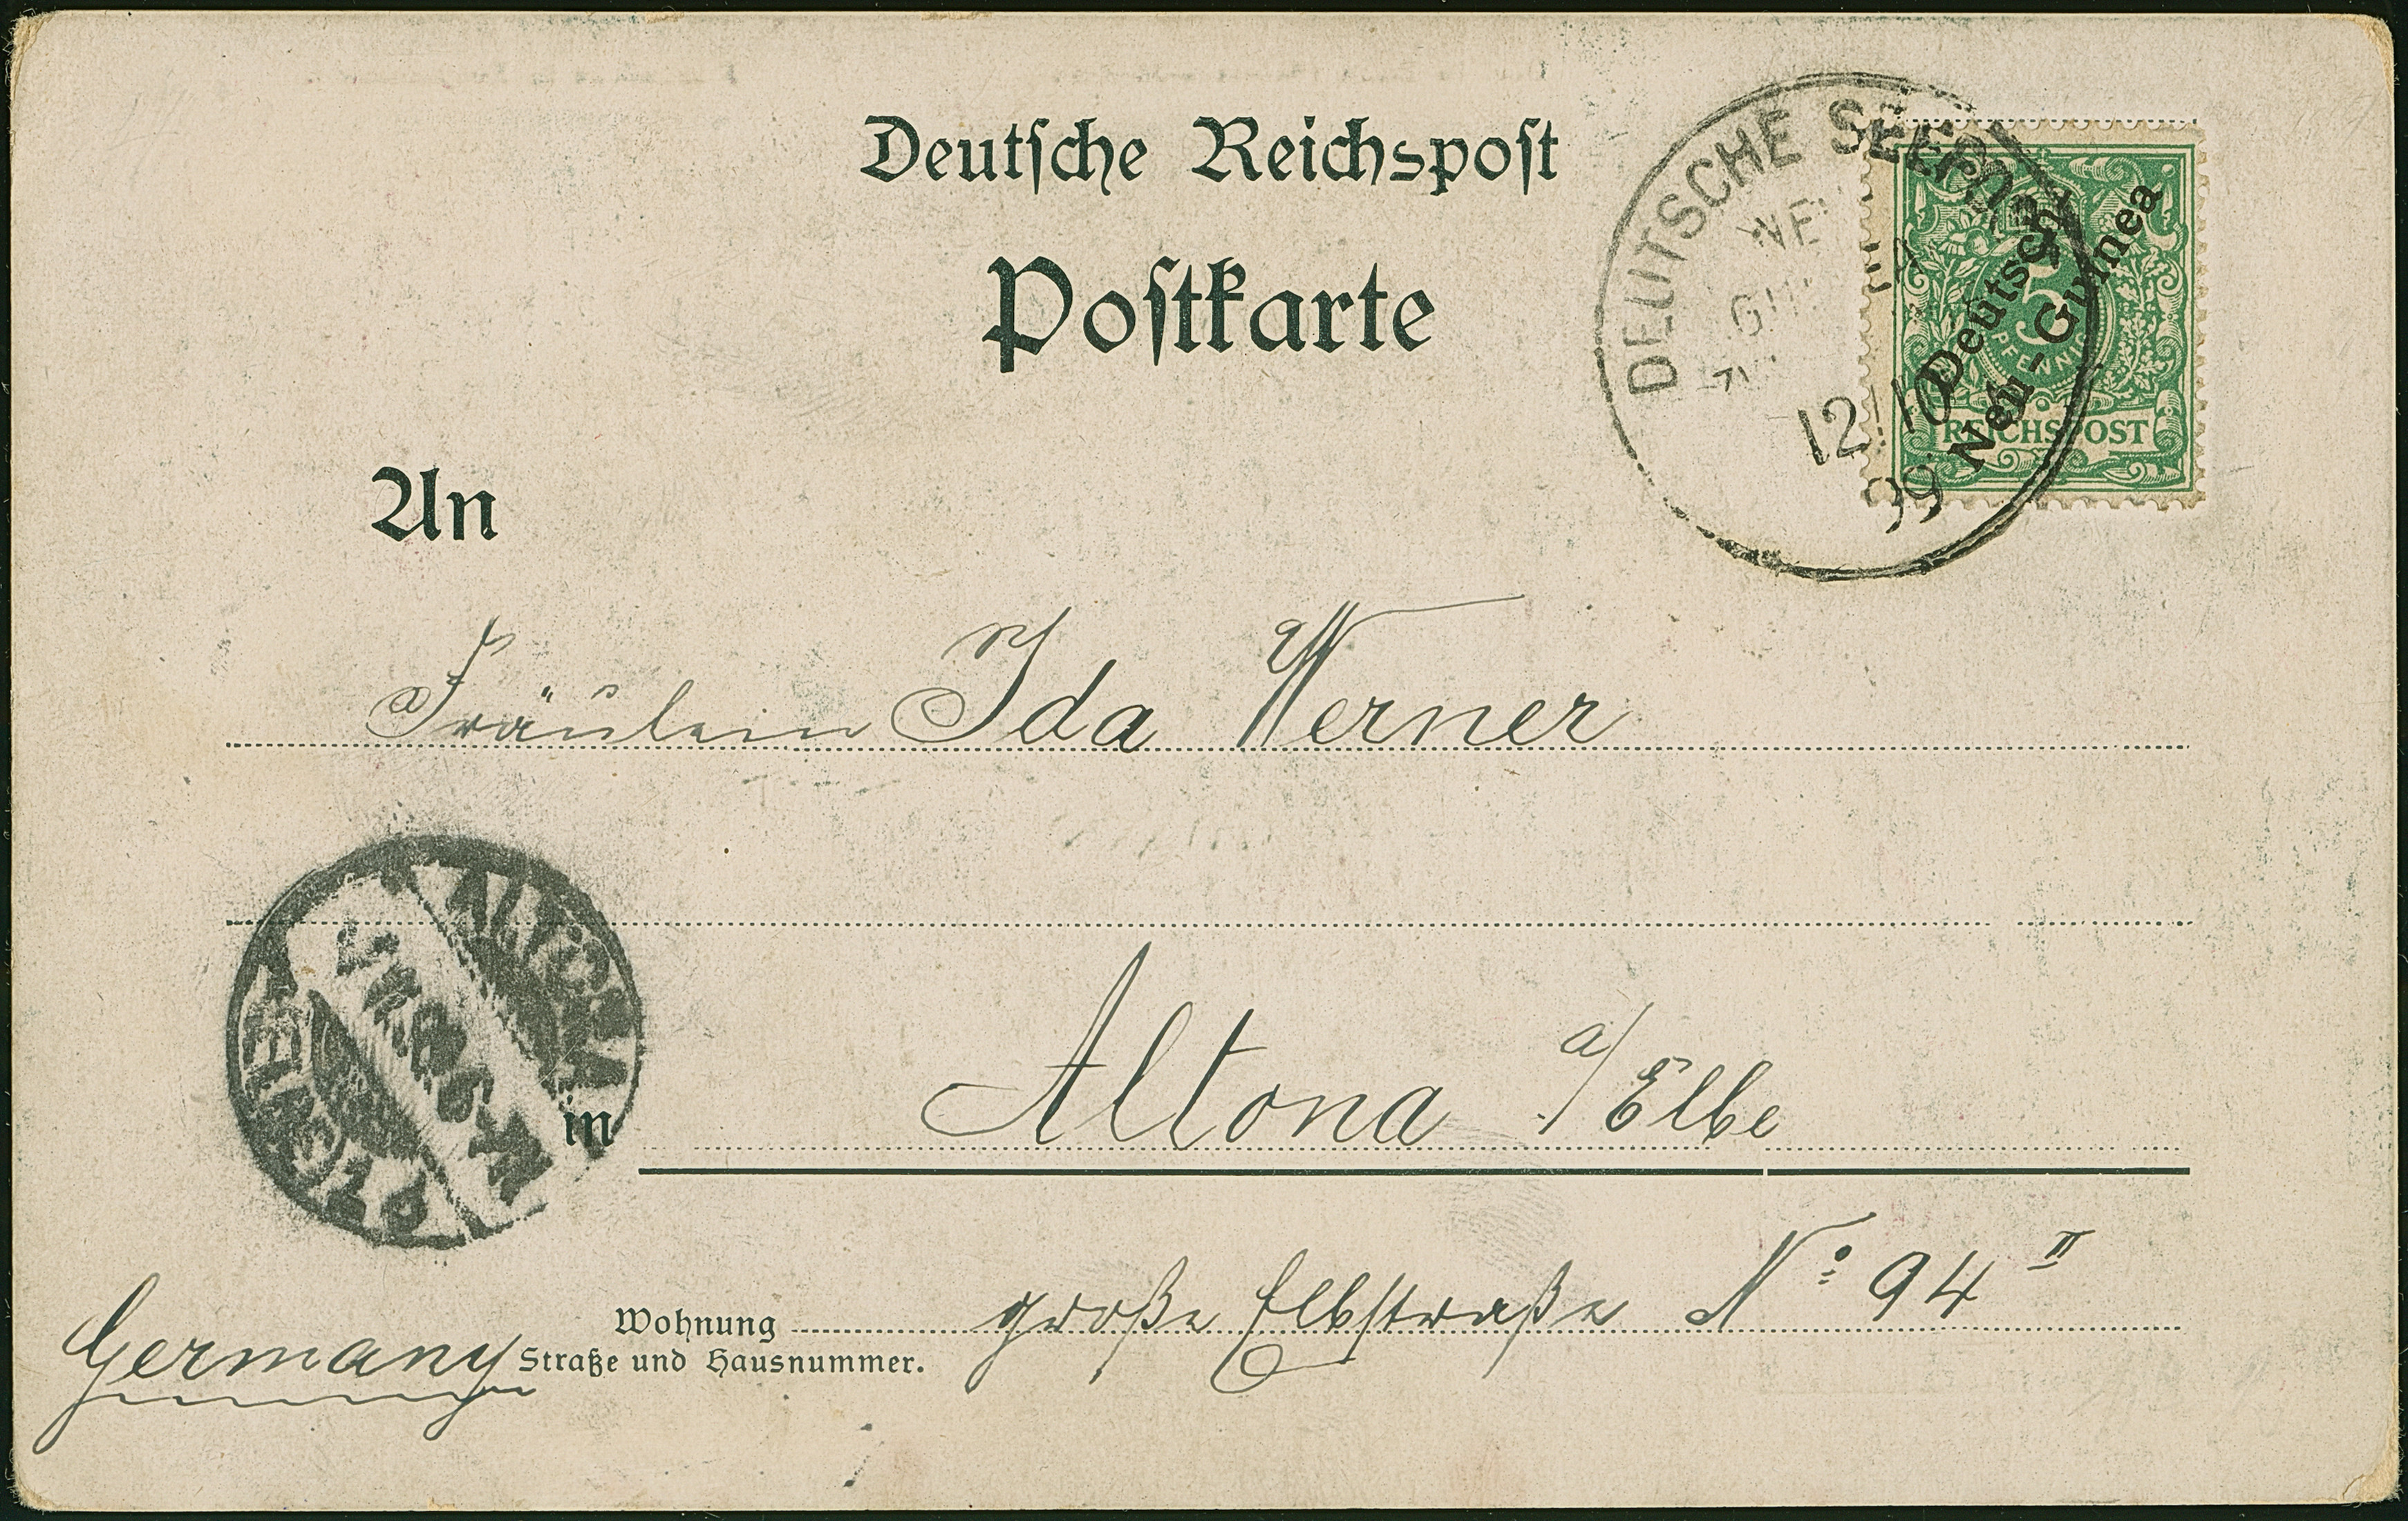 Deutsche Reichspost
Postkarte
DEUTSCHE SEEPOST
12/10
99
Deutsch-
Neu-Guinea
5
PFENNIG
REICHSPOST
An
Fräulein Ida Werner
ALTONA
in Altona a/Elbe
Wohnung große Elbstraße No 94 II
Straße und Hausnummer.
Germany